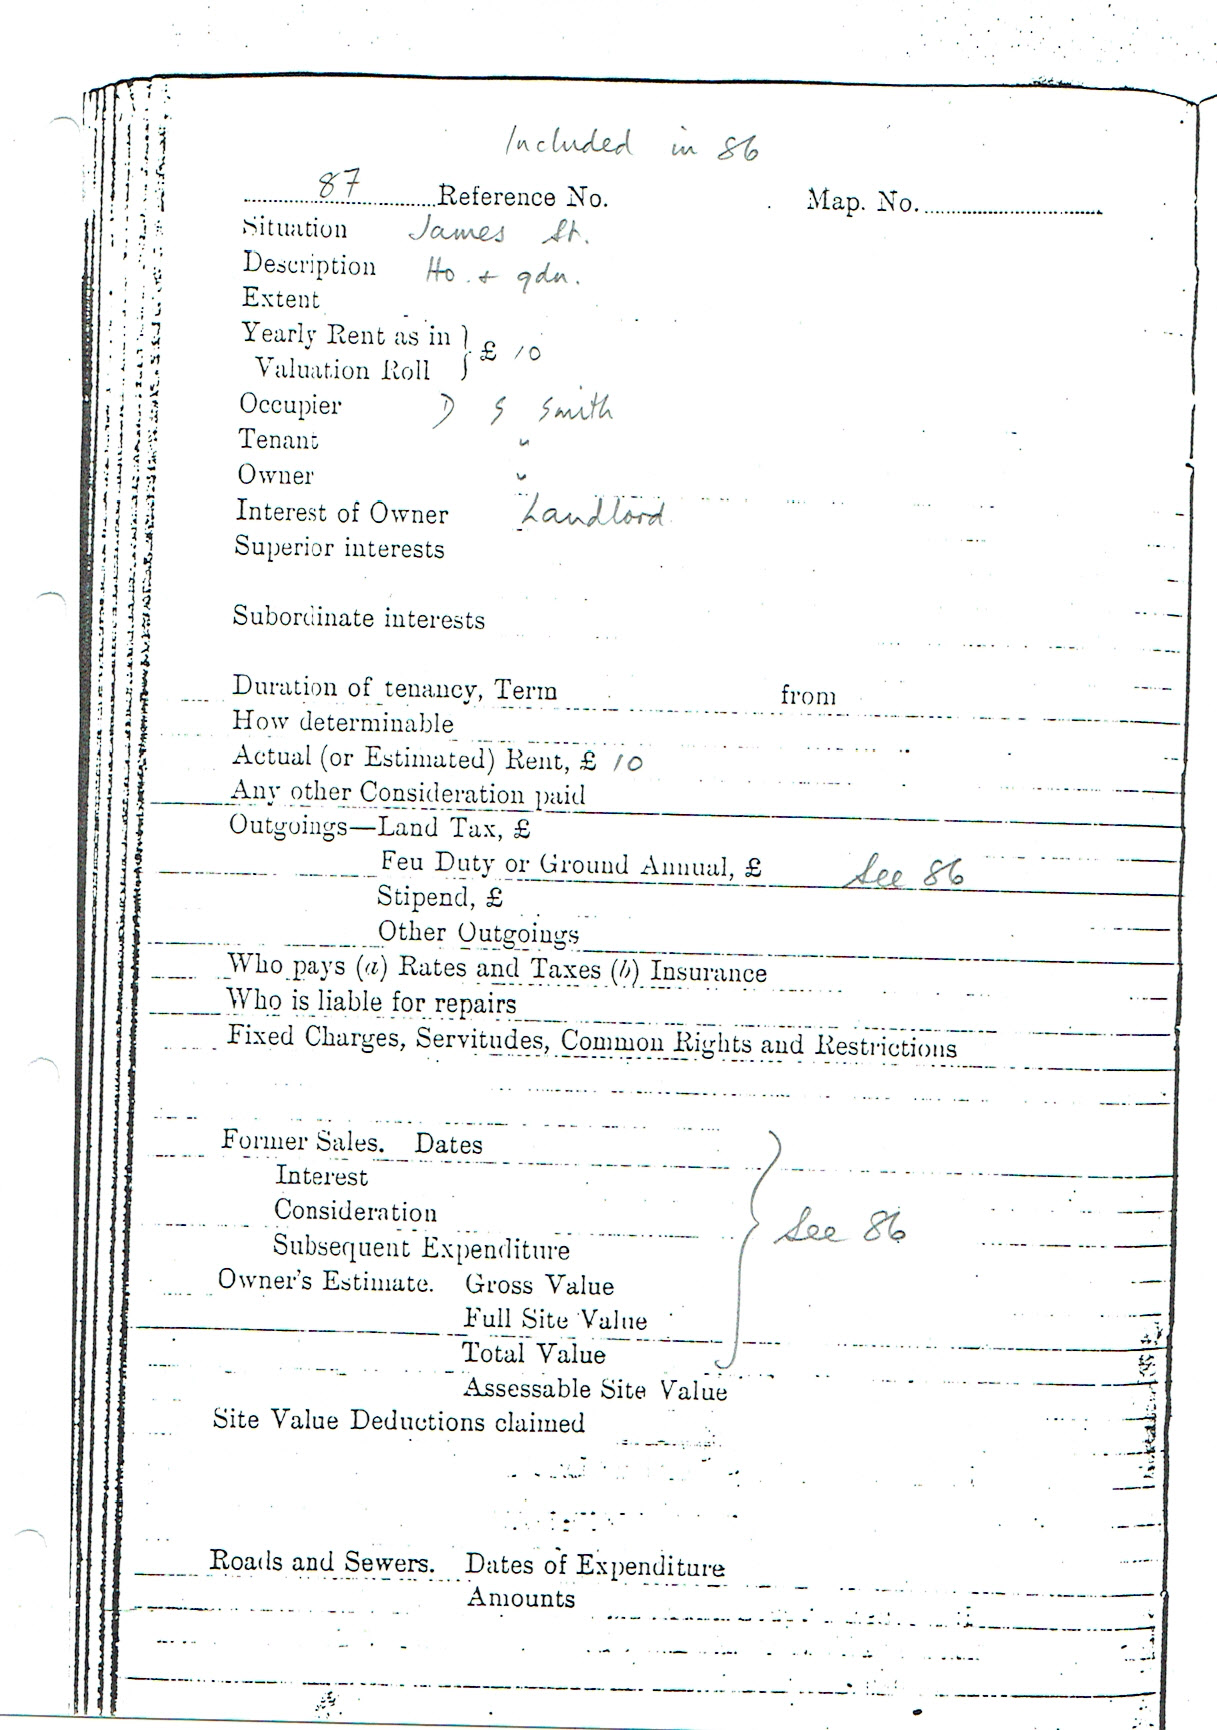 Included in 86
87 Reference No. Map. No.
Situation James St.
Description Ho. + gdn.
Extent
Yearly Rent as in
Valuation Roll } £ 10
Occupier D S Smith
Tenant "
Owner "
Interest of Owner Landlord
Superior interests
Subordinate interests
Duration of tenancy, Term from
How determinable
Actual (or Estimated) Rent, £ 10
Any other Consideration paid
Outgoings—Land Tax, £
Feu Duty or Ground Annual, £ See 86
Stipend, £
Other Outgoings
Who pays (a) Rates and Taxes (b) Insurance
Who is liable for repairs
Fixed Charges, Servitudes, Common Rights and Restrictions
Former Sales. Dates
Interest
Consideration
Subsequent Expenditure } See 86
Owner's Estimate. Gross Value
Full Site Value
Total Value
Assessable Site Value
Site Value Deductions claimed
Roads and Sewers. Dates of Expenditure
Amounts